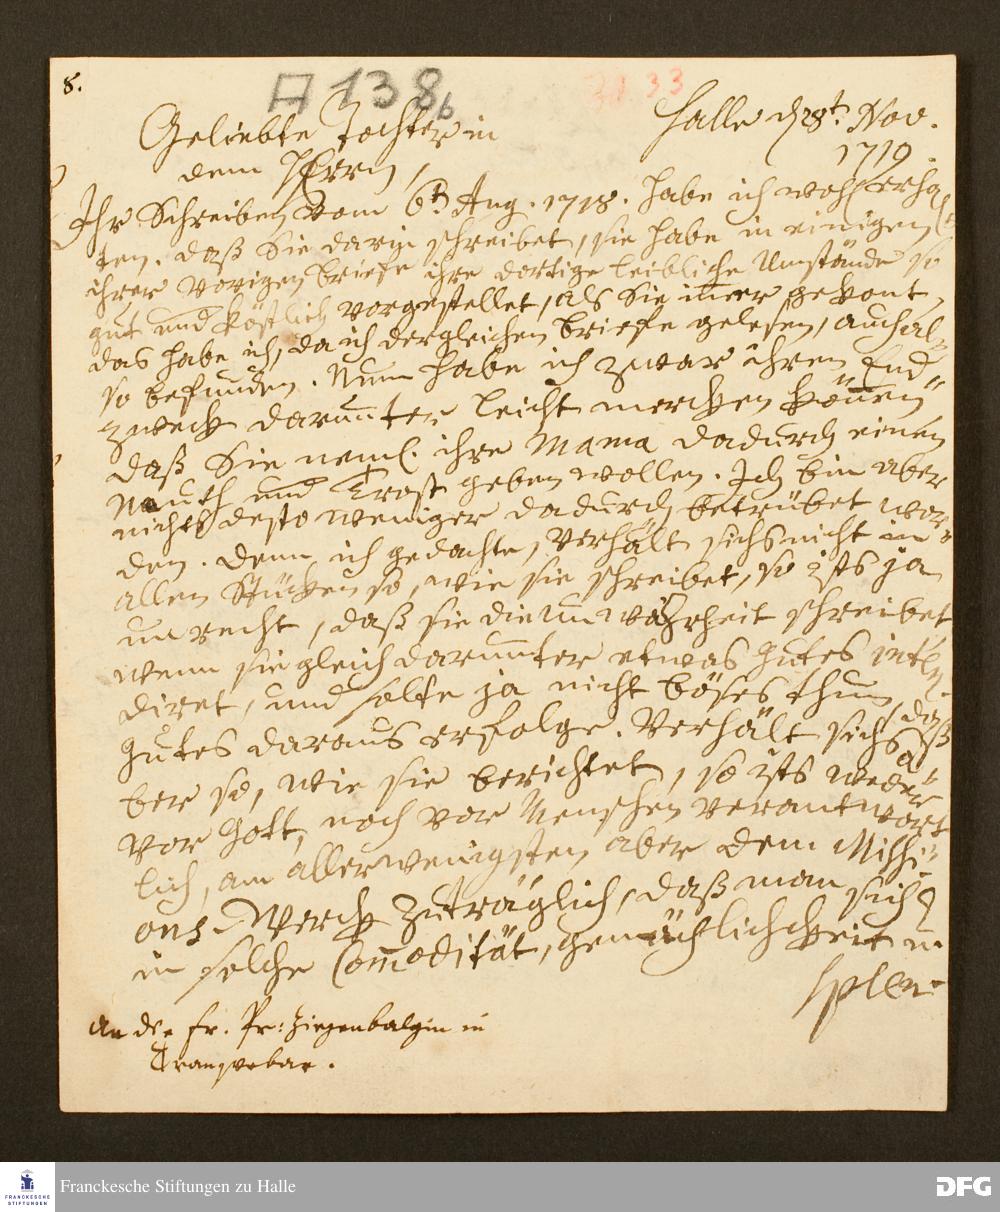 8.
A 138b
31 33
Halle d 28t. Nov.
1719.
Geliebte Tochter in
dem HErrn,
Ihr Schreiben vom 6t. Aug. 1718. habe ich wohl erhal-
ten. daß Sie darin schreibet, sie habe in einigen
ihrer vorigen briefe ihre dortige leibliche Umstände so
gut und köstlich vorgestellet, als Sie immer gekont,
das habe ich, da ich dergleichen briefe gelesen, auch al-
so befunden. Nun habe ich zwar ihren End-
zweck darunter leicht mercken können
daß Sie neml. ihre Mama dadurch einen
Muth und Trost geben wollen. Ich bin aber
nichts desto weniger dadurch betrübet wor-
den. Denn ich gedachte, verhält sichs nicht in
allen Stücken so, wie sie schreibet, so ists ja
unrecht, daß sie die unwahrheit schreibet
wenn sie gleich darunter etwas Gutes inten-
diret, und solte ja nicht böses thun, daß
Gutes daraus erfolge. Verhält sichs a-
ber so, wie sie berichtet, so ists weder
vor Gott, noch vor Menschen verantwort-
lich, am allerwenigsten aber dem Missi-
ons Werck zuträglich, daß man sich
in solche Commodität, gemächlichkeit u.
splen-
An die Fr. Pr: Ziegenbalgin in
Tranqvebar.
FRANCKESCHE STIFTUNGEN
Franckesche Stiftungen zu Halle
DFG